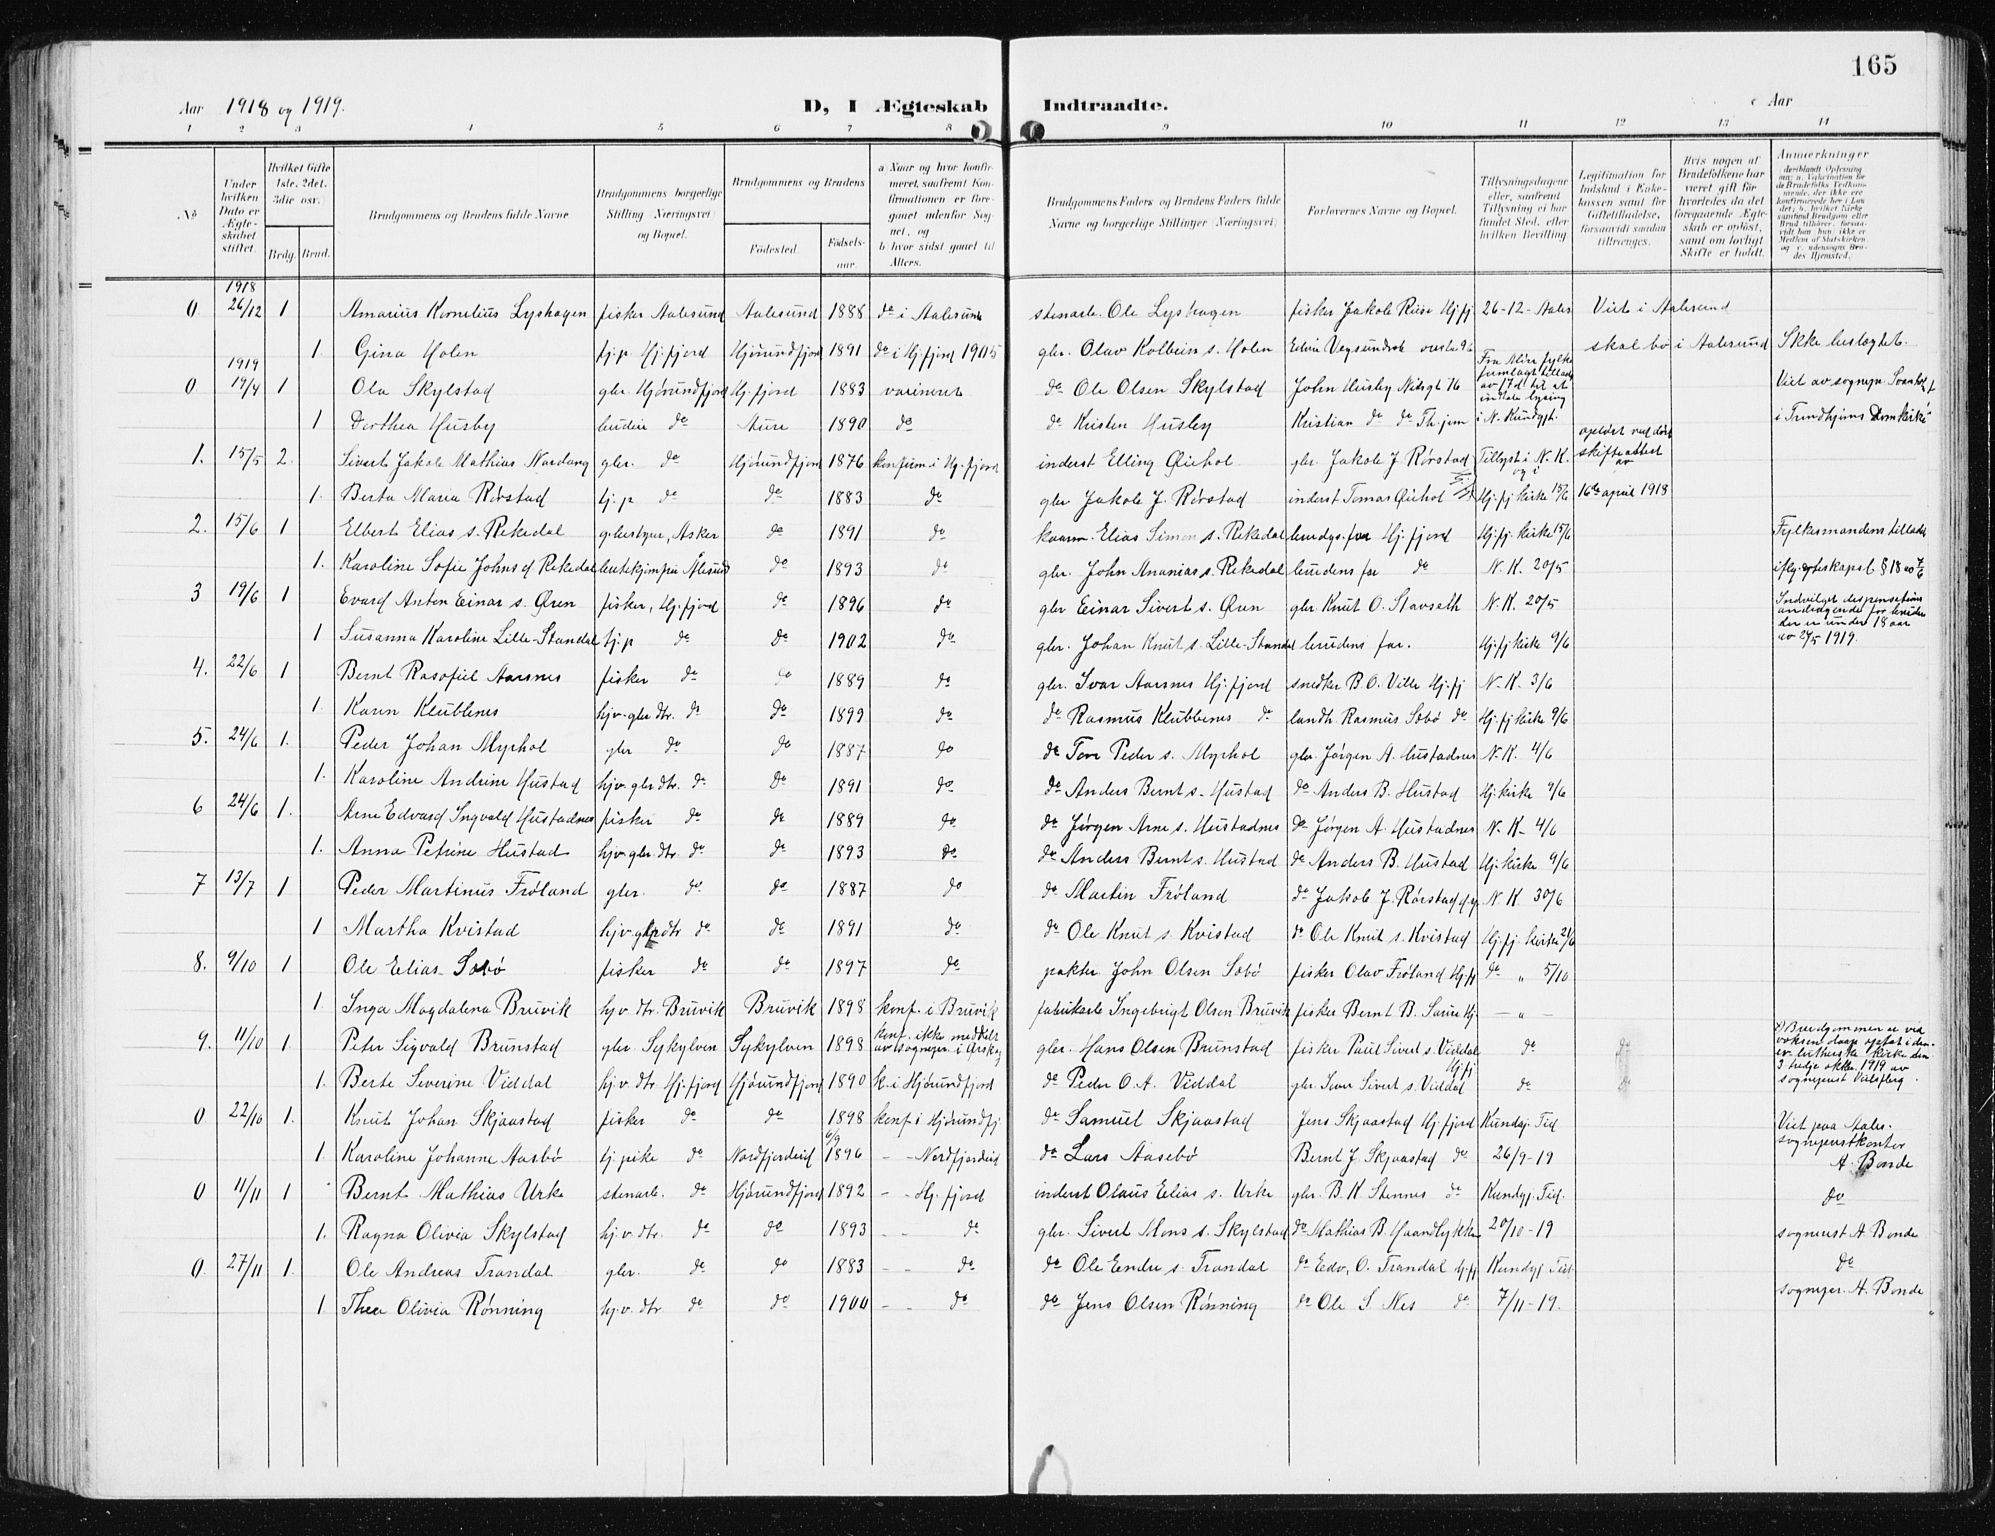 165
Aar 1918 og 1919. D, I Ægteskab Indtraadte. Aar
1 2 3 4 5 6 7 8 9 10 11 12 13 14
No
Under hvilken Dato er Ægteskabet stiftet.
Hvilket Gifte 1ste, 2det, 3die osv.
Brdg. Brud.
Brudgommens og Brudens fulde Navne
Brudgommens borgerlige Stilling (Næringsvei) og Bopæl.
Brudgommens og Brudens
Fødested. Fødselsaar.
a Naar og hvor konfirmeret, saafremt Konfirmationen er foregaaet udenfor Sognet, og
b hvor sidst gaaet til Alters.
Brudgommens Faders og Brudens Faders fulde Navne og borgerlige Stillinger (Næringsvei)
Forlovernes Navne og Bopæl.
Tillysningsdagene eller, saafremt Tillysning ei har fundet Sted, efter hvilken Bevilling
Legitimation for Indskud i Enkekassen samt for Giftetilladelse, forsaavidt saadan tiltrænges.
Hvis nogen af Brudefolkene har været gift før hvorledes da det foregaaende Ægteskab er opløst, samt om lovligt Skifte er holdt.
Anmærkninger
1918
0 26/12 1 Amarius Kornelius Lyshagen fisker Aalesund Aalesund 1888 do i Aalesund stenarb. Ole Lyshagen fisker Jakob Riise Hj.fj 26-12- Aales Viet i Aalesund
1. Gina Holen hj.p Hj.fjord Hjørundfjord 1891 do i Hj.fjord 1905 gbr. Olav Kolbein s. Holen skal bo i Aalesund Ikke beslægtet.
1919
0 19/4 1 Ola Skylstad gbr. Hjørundfjord Hj.fjord 1883 do Ole Olsen Skylstad John Husby Fra Møre fylke av 17 d. til at Viet av sognepr.
1 Dorthea Husby do Aure 1890 do do Kristen Husby Kristian do do Th.jem i N. Kundgj. i Trondhjems Domkirke
1. 15/5 2. Sivert Jakob Mathias Nordang gbr. do Hjørundfjord 1876 konfirm. i Hj.fjord inderst Elling Øiehol gbr. Jakob J. Rørstad Tillyst i N. K. og i opløst ved død skifteattest av
1. Berta Maria Rørstad hj.p do do 1883 do gbr Jakob J. Rørstad inderst Tomas Øiehol Hj.fj kirke 15/6 16de april 1918
2. 15/6 1 Elbert Elias s. Rekedal Asker do 1891 do Elias Simon s. Rekedal Hj.fjord Hj.fj. kirke 15/6 Fylkesmandens tillad.
1. Karoline Sofie Johns d Rekedal Ålesund do 1893 do gbr. John Ananias s. Rekedal brudens far do N. K. 20/5
3 19/6 1 Evard Anton Einar s. Øren fisker, Hj.fjord do 1896 do gbr Einar Sivert s. Øren gbr. Knut O. Stavseth N. K. 20/5 Indvilget dispensations
1 Susanna Karoline Lille-Standal hj.p do do 1902 do gbr. Johan Knut s. Lille-Standal brudens far. Hj.fj kirke 9/6 der er under 18 aar av 27/5 1919.
4. 22/6 1 Bernt Rasofiel Aarsnes fisker do do 1889 do gbr. Ivar Aarsnes Hj.fjord snedker B. O. Ville Hj.fj N. K. 3/6
1. Karen Klubbenes hjv. gbr dtr. do do 1899 do do Rasmus Klubbenes do landh. Rasmus Sæbø do Hj.fj kirke 9/6
5. 24/6 1. Peder Johan Myrhol gbr do do 1887 do do Tore Peder s. Myrhol gbr. Jørgen A. Hustadnes N. K. 4/6
1. Karoline Andrine Hustad hjv. gbr dtr. do do 1891 do do Anders Bernt s. Hustad do Anders B. Hustad Hj. kirke 9/6
6 24/6 1. Arne Edvard Ingvald Hustadnes fisker do do 1889 do do Jørgen Arne s. Hustadnes do Jørgen A. Hustadnes N. K. 4/6
1. Anna Petrine Hustad hjv. gbr. dtr. do do 1893 do do Anders Bernt s. Hustad do Anders B. Hustad Hj. kirke 9/6
7 13/7 1 Peder Martinus Frøland gbr. do do 1887 do do Martin Frøland do Jakob J. Rørstad N. K. 30/6
1 Martha Kvistad hjv. gbr dtr do do 1891 do do Ole Knut s. Kvistad do Ole Knut s. Kvistad Hj.fj. kirke 21/6
8. 9/10 1 Ole Elias Sæbø fisker do do 1897 do John Olsen Sæbø fisker Olav Frøland Hj.fj do " 5/10
1. Inga Magdalena Bruvik hj.v. dtr. Bruvik Bruvik 1898 konf. i Bruvik fabrikarb Ingebrigt Olsen Bruvik fisker Bernt B. Hj. — " —
9. 11/10 1. Peter Sigvald Brunstad gbr. Sykylven Sykylven 1898 konf. ikke meddelt av sognepr. i Ørskog gbr. Hans Olsen Brunstad fisker Paul Sivert s. Viddal Hj.fj do do Brudgommen er ved voksen daap optat i den ev. lutherske kirke den 3 tredje oktbr. 1919 av
1. Berte Severine Viddal hj.v. dtr Hj.fjord Hjørundfjord 1890 k. i Hjørundfjord do Peder O. A. Viddal gbr. Iver Sivert s. Viddal do do
0 22/10 1. Knut Johan Skjaastad fisker do do 1898 konf i Hjørundfj. do Samuel Skjaastad Jens Skjaastad Hj.fjord Kundgj. Tid Viet paa Aales. sogneprestkontor
1. Karoline Johanne Aasbø hj. pike do Nordfjordeid 6/9 1896 - - Nordfjordeid do Lars Aasebø Bernt J. Skjaastad do 26/9-19 A. Bonde
0 11/11 1 Bernt Mathias Urke stenarb. do Hjørundfjord 1892 - - Hj. fjord inderst Olaus Elias s. Urke gbr. B. K. Stennes do Kundgj. Tid. do
1. Ragna Olivia Skylstad hj.v. dtr. do do 1893 - - do gbr. Sivert Mons s. Skylstad do Mathias B. Haandlykken 20/10-19 sogneprst A Bonde
0. 27/11 1. Ole Andreas Trandal gbr. do do 1883 - - do do Ole Endre s. Trandal do Edv. O. Trandal Hj.fj Kundgj Tid. do
1. Thea Olivia Rønning hj.v. dtr do do 1900 - - do do Jens Olsen Rønning do Ole S. Nes do 7/11-19. sognepr. A. Bonde